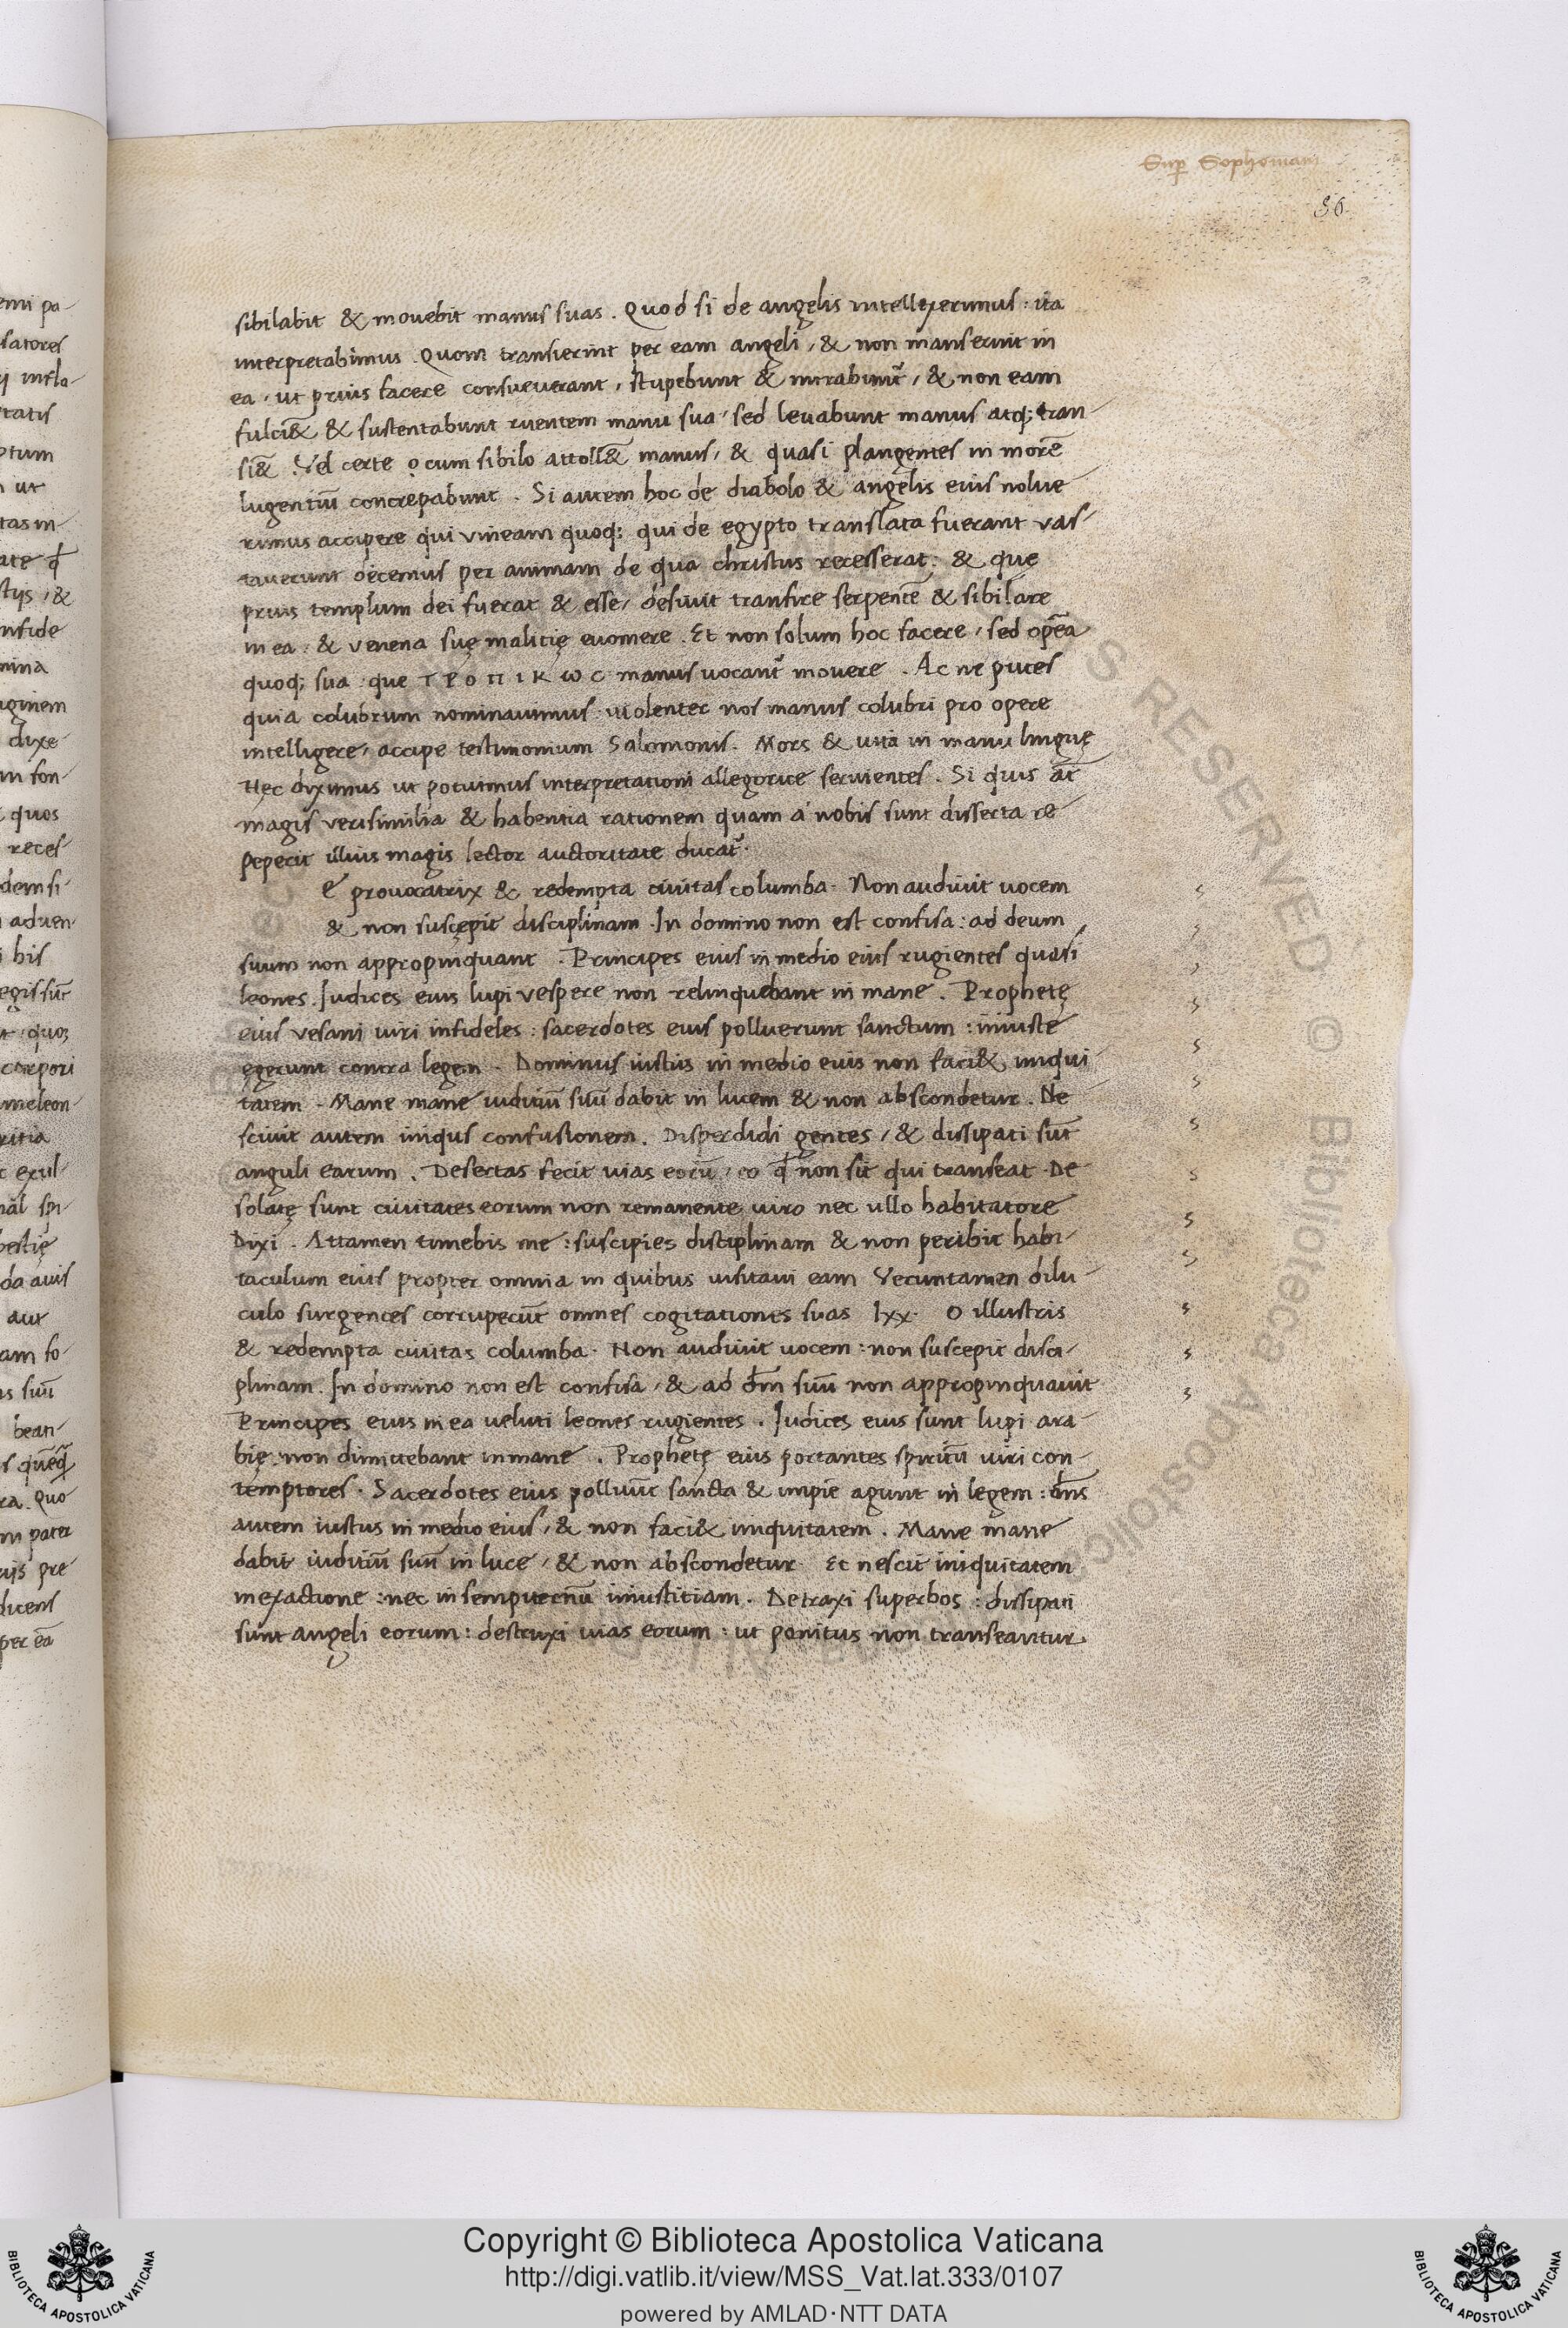 Sup̱ Sophoniam
86
sibilabit & mouebit manus suas. Quod si de angelis intellexerimus: ita
interpretabimus. Quom transierint per eam angeli, & non manserint in
ea, ut prius facere consueuerant, stupebunt & mirabunt᷑, & non eam
fulci&̄ & sustentabunt ruentem manu sua, sed leuabunt manus atq; tran-
si&̄. Vel certe cum sibilo attoll&̄ manus, & quasi plangentes in morē
lugentiū concrepabunt. Si autem hoc de diabolo & angelis eius nolue-
rimus accipere qui vineam quoq; qui de egypto translata fuerant vas-
tauerunt dicemus per animam de qua christus recesserat: & quę
prius templum dei fuerat & esse, desiuit transire serpentē & sibilare
in ea: & venena suę malitię euomere. Et non solum hoc facere, sed opēa
quoq; sua: que ΤΡΟΠΙΚωC manus uocant᷑ mouere. Ac ne putes
quia colubrum nominauimus uiolenter nos manus colubri pro opere
intelligere, accipe testimonium Salomonis. Mors & uita in manu linguę
Hęc diximus ut potuimus interpretationi allegorice seruientes. Si quis aūt
magis verisimilia & habentia rationem quam a nobis sunt disserta re-
pepecit illius magis lector auctoritate ducat᷑.
e prouocatrix & redempta ciuitas columba. Non audiuit uocem
& non suscępit disciplinam. In domino non est confisa: ad deum
suum non appropinquant. Principes eius in medio eius rugientes quasi
leones. Judices eius lupi vespere non relinquebant in mane. Prophetę
eius vesani uiri infideles: sacerdotes eius polluerunt sanctum: iniuste
egerunt contra legem. Dominus iustus in medio eius non faci& iniqui-
tatem. Mane mane iuditiū suū dabit in lucem & non abscondetur. Ne-
sciuit autem iniqus confusionem. Disperdidi gentes, & dissipati sūt
anguli earum. Desertas fecit uias eorū, eo q̄ non sit qui transeat. De-
solatę sunt ciuitates eorum non remanente uiro nec ullo habitatore
Dixi. Attamen timebis me: suscipies disciplinam & non peribit habi-
taculum eius propter omnia in quibus uisitaui eam Veruntamen dilu-
culo surgentes corruperūt omnes cogitationes suas lxx. O illustris
& redempta ciuitas columba. Non audiuit uocem: non suscepit disci-
plinam. In domino non est confisa, & ad dm̄ suū non appropinquauit
Principes eius in ea veluti leones rugientes. Judices eius sunt lupi ara-
bię. non dimittebant in mane. Prophetę eius portantes spiritū uiri con-
temptores. Sacerdotes eius polluūt sancta & impie agunt in legem: dn̄s
autem iustus in medio eius, & non faci& iniquitatem. Mane mane
dabit iuditiū suū in luce, & non abscondetur. Et nescit iniquitatem
in exactione: nec in sempiternū iniustitiam. Detraxi superbos: dissipati
sunt angeli eorum: destruxi uias eorum: ut penitus non transeantur.
Copyright © Biblioteca Apostolica Vaticana
http://digi.vatlib.it/view/MSS_Vat.lat.333/0107
powered by AMLAD·NTT DATA
BIBLIOTECA APOSTOLICA VATICANA
BIBLIOTECA APOSTOLICA VATICANA